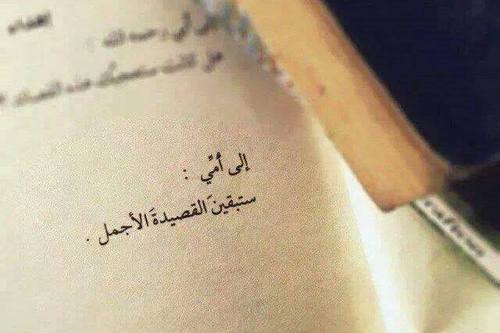 إهداء
إلى أبي رحمه الله :
هل كانت ستعجبك هذه القصائد
إلى أُمِّي :
ستبقينَ القصيدةَ الأجمل .